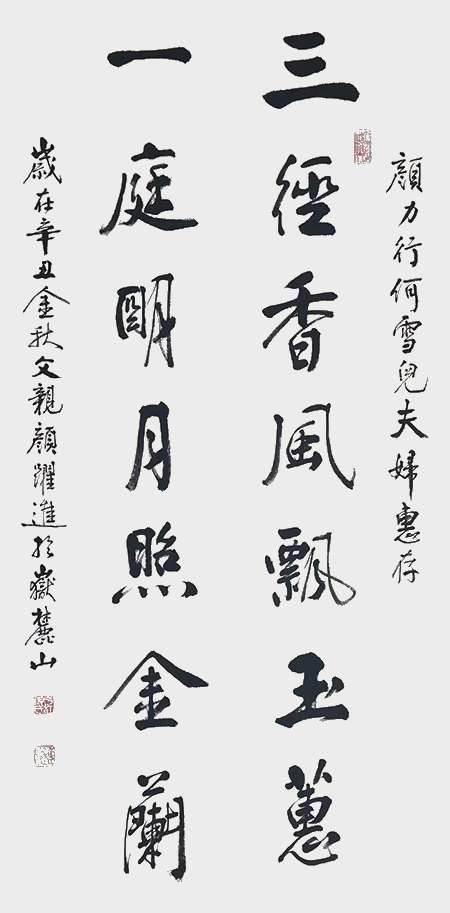 顏力行何雪兒夫婦惠存
三徑香風飄玉蕙
一庭明月照金蘭
歲在辛丑金秋父親顏躍進於嶽麓山